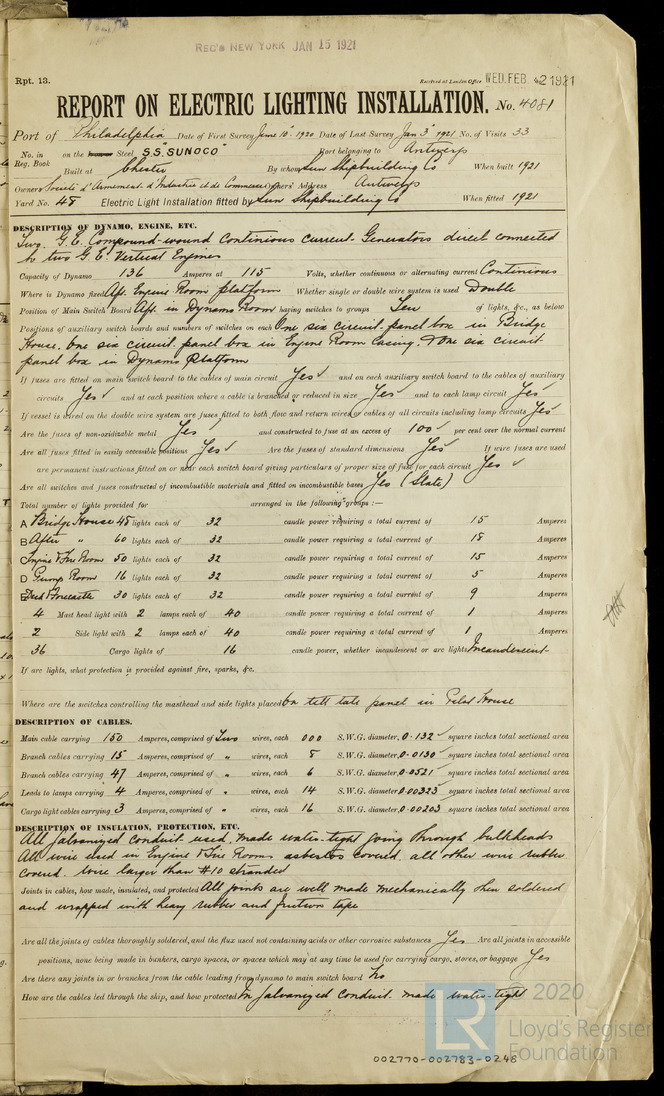 REC'D NEW YORK JAN 15 1921
Rpt. 13.
Received at London Office WED. FEB. 2 1921
REPORT ON ELECTRIC LIGHTING INSTALLATION. No. 4081
Port of Philadelphia Date of First Survey June 10th 1920 Date of Last Survey Jan 3rd 1921 No. of Visits 33
No. in Reg. Book on the Iron or Steel S.S. "SUNOCO" Port belonging to Antwerp
Built at Chester By whom Sun Shipbuilding Co When built 1921
Owners Societe d'Armement d'Industrie et de Commerce Owners' Address Antwerp
Yard No. 48 Electric Light Installation fitted by Sun Shipbuilding Co When fitted 1921
DESCRIPTION OF DYNAMO, ENGINE, ETC.
Two G.E. Compound-wound Continuous current Generators direct connected
to two G.E. Vertical Engines
Capacity of Dynamo 136 Amperes at 115 Volts, whether continuous or alternating current Continuous
Where is Dynamo fixed Aft. Engine Room platform Whether single or double wire system is used Double
Position of Main Switch Board Aft. in Dynamo Room having switches to groups Ten of lights, &c., as below
Positions of auxiliary switch boards and numbers of switches on each One six circuit panel box in Bridge
House. One six circuit panel box in Engine Room Casing. & One six circuit
panel box in Dynamo Platform
If fuses are fitted on main switch board to the cables of main circuit Yes ✓ and on each auxiliary switch board to the cables of auxiliary
circuits Yes ✓ and at each position where a cable is branched or reduced in size Yes ✓ and to each lamp circuit Yes ✓
If vessel is wired on the double wire system are fuses fitted to both flow and return wires or cables of all circuits including lamp circuits Yes ✓
Are the fuses of non-oxidizable metal Yes and constructed to fuse at an excess of 100 ✓ per cent over the normal current
Are all fuses fitted in easily accessible positions Yes ✓ Are the fuses of standard dimensions Yes ✓ If wire fuses are used
are permanent instructions fitted on or near each switch board giving particulars of proper size of fuse for each circuit Yes ✓
Are all switches and fuses constructed of incombustible materials and fitted on incombustible bases Yes (Slate)
Total number of lights provided for arranged in the following groups:—
A Bridge House 48 lights each of 32 candle power requiring a total current of 15 Amperes
B After " 60 lights each of 32 candle power requiring a total current of 18 Amperes
Engine & Fire Room 50 lights each of 32 candle power requiring a total current of 15 Amperes
D Pump Room 16 lights each of 32 candle power requiring a total current of 5 Amperes
E Forecastle 30 lights each of 32 candle power requiring a total current of 9 Amperes
4 Mast head light with 2 lamps each of 40 candle power requiring a total current of 1 Amperes
2 Side light with 2 lamps each of 40 candle power requiring a total current of 1 Amperes
36 Cargo lights of 16 candle power, whether incandescent or arc lights Incandescent
If arc lights, what protection is provided against fire, sparks, &c.
Where are the switches controlling the masthead and side lights placed On tell tale panel in Pilot House
DESCRIPTION OF CABLES.
Main cable carrying 150 Amperes, comprised of Two wires, each 000 S.W.G. diameter, 0.132 ✓ square inches total sectional area
Branch cables carrying 15 Amperes, comprised of " wires, each 8 S.W.G. diameter, 0.0130 ✓ square inches total sectional area
Branch cables carrying 47 Amperes, comprised of " wires, each 6 S.W.G. diameter, 0.0521 ✓ square inches total sectional area
Leads to lamps carrying 4 Amperes, comprised of " wires, each 14 S.W.G. diameter, 0.00323 ✓ square inches total sectional area
Cargo light cables carrying 3 Amperes, comprised of " wires, each 16 S.W.G. diameter, 0.00203 ✓ square inches total sectional area
DESCRIPTION OF INSULATION, PROTECTION, ETC.
All Galvanized conduit used, made water-tight going through bulkheads
All wire used in Engine & Fire Rooms asbestos covered, all other wire rubber
covered. Wire larger than #10 stranded
Joints in cables, how made, insulated, and protected All joints are well made mechanically then soldered
and wrapped with heavy rubber and friction tape
Are all the joints of cables thoroughly soldered, and the flux used not containing acids or other corrosive substances Yes Are all joints in accessible
positions, none being made in bunkers, cargo spaces, or spaces which may at any time be used for carrying cargo, stores, or baggage Yes
Are there any joints in or branches from the cable leading from dynamo to main switch board No
How are the cables led through the ship, and how protected In Galvanized conduit made water-tight
© 2020
LR
Lloyd's Register
Foundation
002770-002783-0248